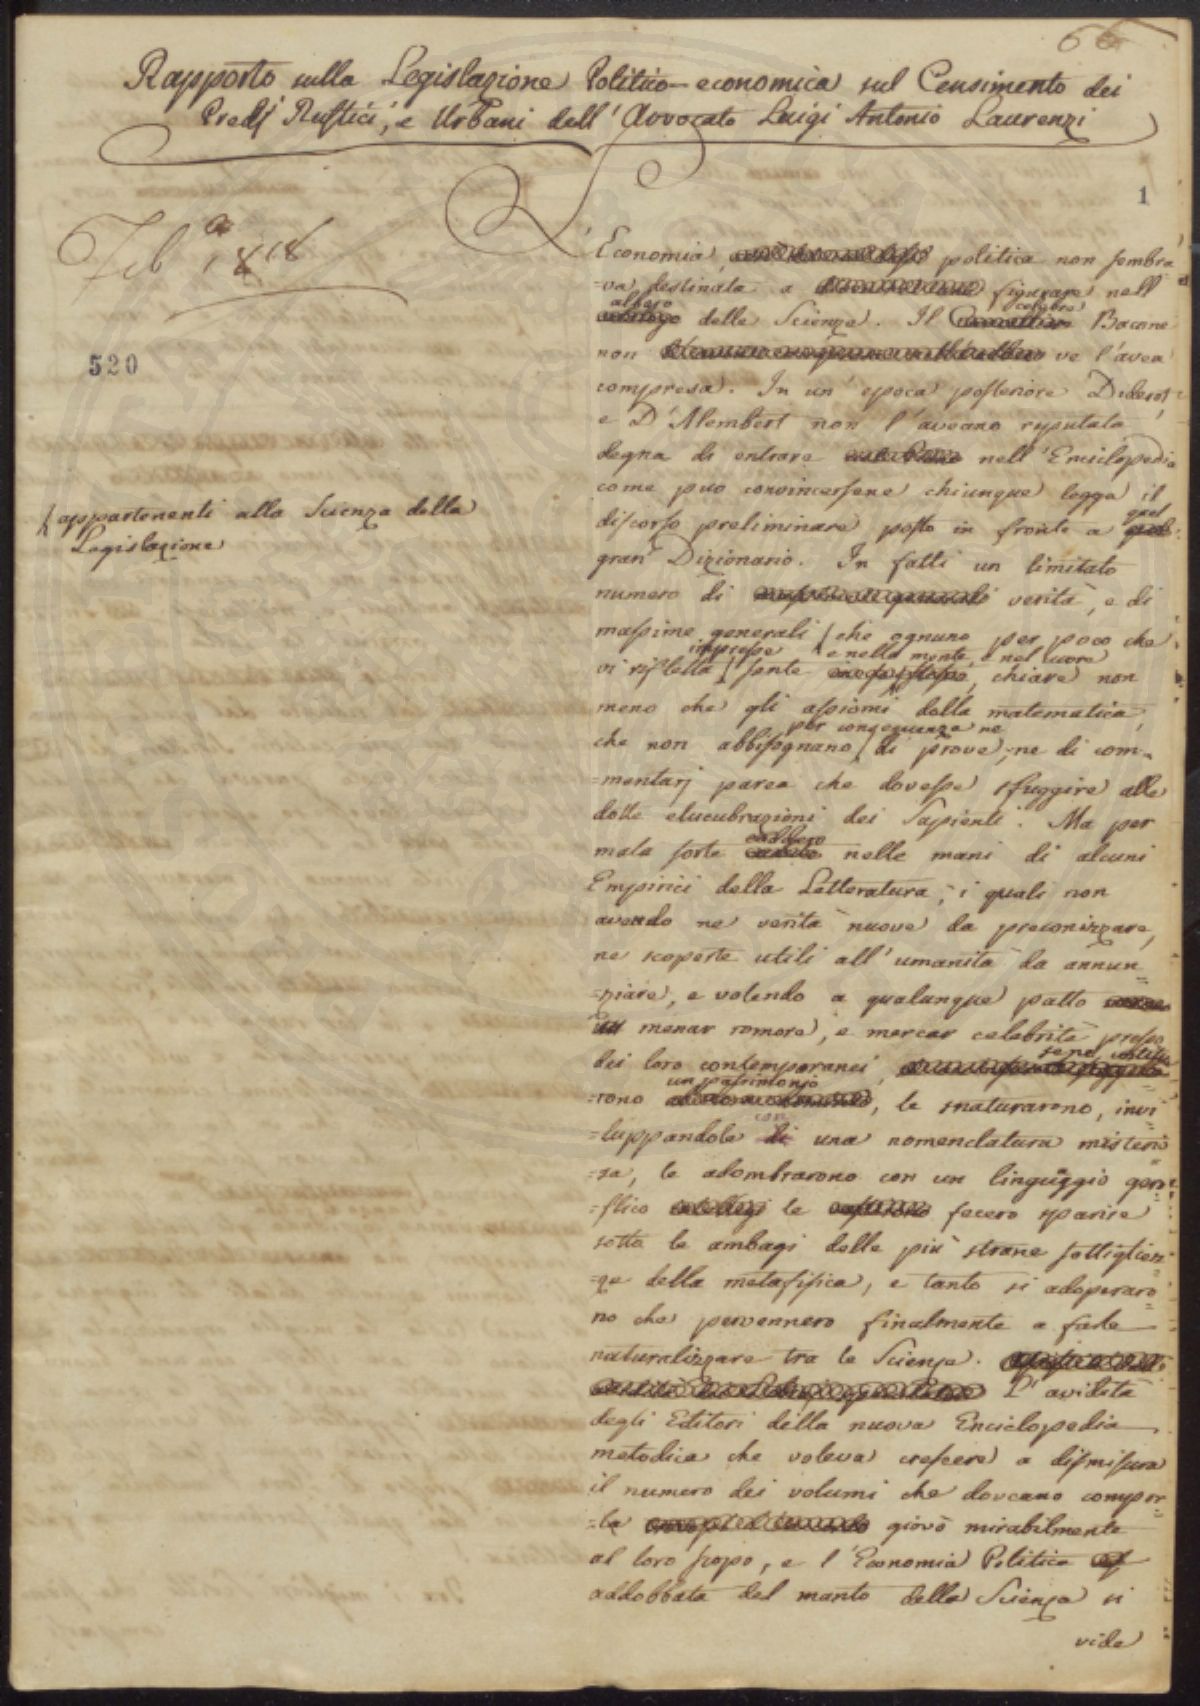 66
Rapporto sulla Legislazione Politico-economica sul Censimento dei
Predj Rustici, e Urbani dell'Avvocato Luigi Antonio Laurenzi
1
Feb.ᵃ 1818
520
appartenenti alla Scienza della
Legislazione
L'Economia politica non sembra
=va destinata a figurare nell'
albero
delle Scienze. Il celebre Bacone
non ve l'avea
compresa. In un'epoca posteriore Diderot,
e D'Alembert non l'aveano riputata
degna di entrare nell'Enciclopedia
come può convincersene chiunque legga il
discorso preliminare posto in fronte a quel
gran Dizionario. In fatti un limitato
numero di verità, e di
massime generali che ognuno per poco che
impresse e nella mente, e nel cuore
vi rifletta sente , chiare non
meno che gli assiomi della matematica,
per conseguenza ne
che non abbisognano di prove, ne di com=
=mentarj parea che dovesse sfuggire alle
dotte elucubrazioni dei Sapienti. Ma per
caddero
mala sorte nelle mani di alcuni
Empirici della Letteratura, i quali non
avendo ne verità nuove da preconizzare,
ne scoperte utili all'umanità da annun
=ziare, e volendo a qualunque patto
menar romore, e mercar celebrità presso
dei loro contemporanei, sene costitui
un patrimonio
=rono , le snaturarono, invi
con
=luppandole di una nomenclatura misterio
=sa, le adombrarono con un linguaggio gero
=flico le fecero sparire
sotto le ambagi delle più strane sottiglien
=ze della metafisica, e tanto si adoperaro
no che pervennero finalmente a farle
naturalizzare tra le Scienze.
L'avidità
degli Editori della nuova Enciclopedia
metodica che voleva crescere a dismisura
il numero dei volumi che doveano compor
=la giovò mirabilmente
al loro scopo, e l'Economia Politica
addobbata del manto della Scienza si
vide